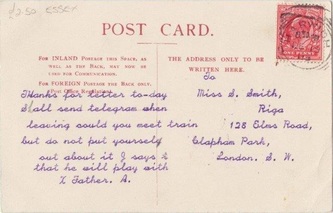 £2.50 ESSEX
POST CARD.
For INLAND Postage this Space, as
well as the Back, may now be
used for Communication.
For FOREIGN Postage the Back only.
THE ADDRESS ONLY TO BE
WRITTEN HERE.
To
Thanks for letter to-day
Shall send telegram when
leaving could you meet train
but do not put yourself
out about it J says
that he will play with
Father. A.
Miss S. Smith,
Riga
128 Elms Road,
Clapham Park,
London. S. W.